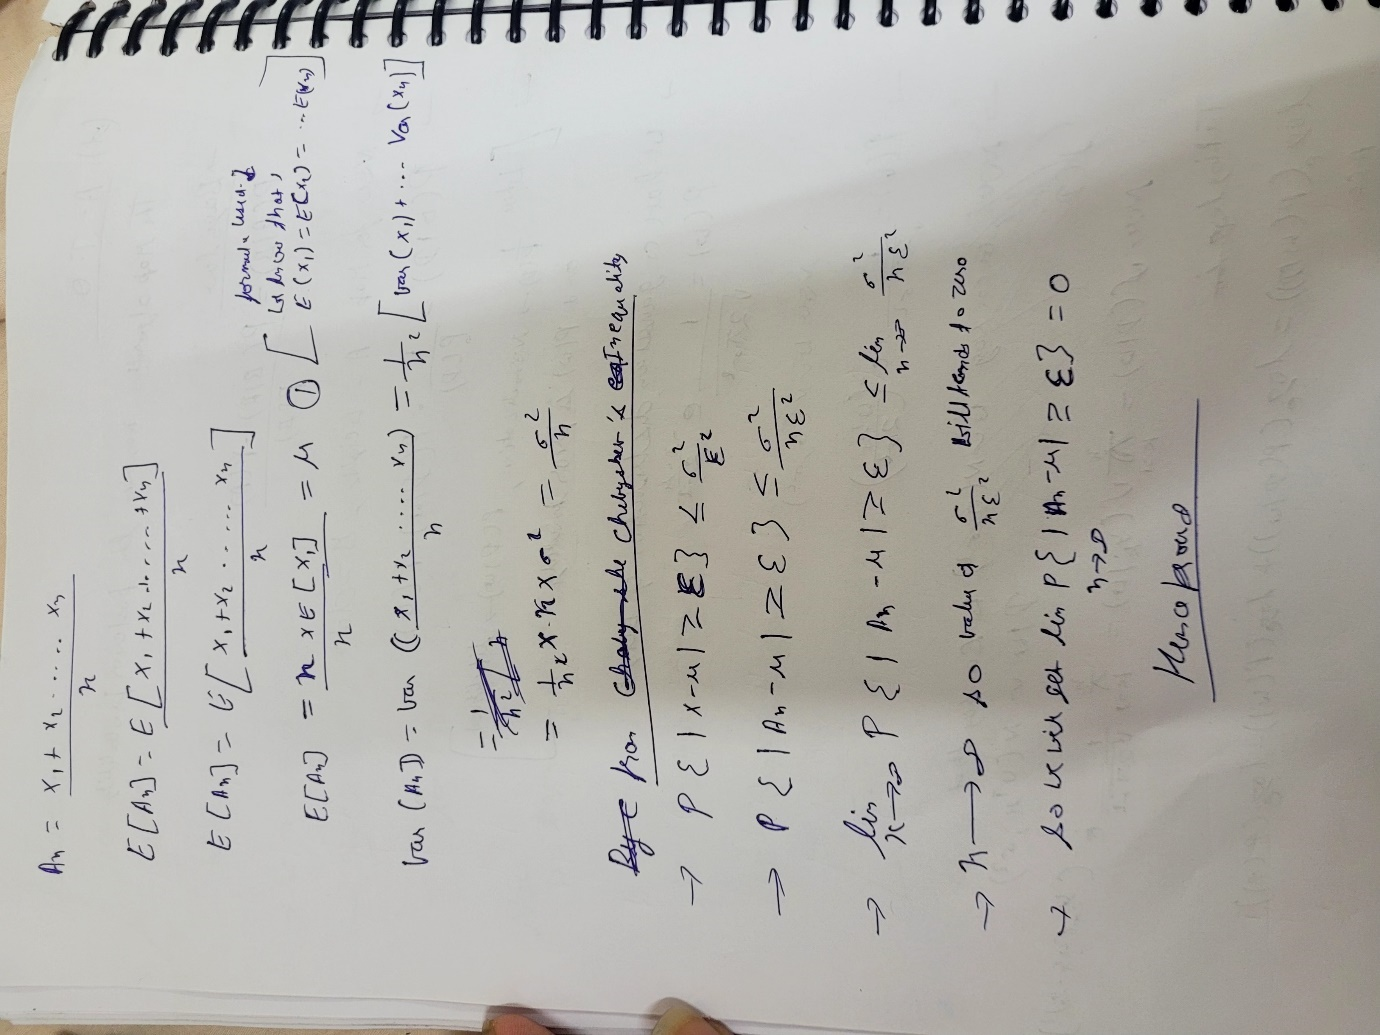 An = x1 + x2 ..... xn / n
E[An] = E[x1 + x2 + ..... + xn] / n
E[An] = E[x1 + x2 ...... xn / n]
formula used :-
let know that,
E[An] = n x E[x1] / n = μ ① [E(x1) = E(x2) = ... E(xn)]
Var (An) = Var ((x1 + x2 ..... xn) / n) = 1/n² [Var (x1) + .... Var (xn)]
= 1/n² x n x σ² = σ²/n
from Chebyshev's Inequality
→ P { |x-μ| ≥ ε } ≤ σ²/ε²
→ P { |An-μ| ≥ ε } ≤ σ²/nε²
→ lim n→∞ P { |An-μ| ≥ ε } ≤ lim n→∞ σ²/nε²
→ n → ∞ so value of σ²/nε² will tends to zero
→ so we get lim n→∞ P { |An-μ| ≥ ε } = 0
Hence proved